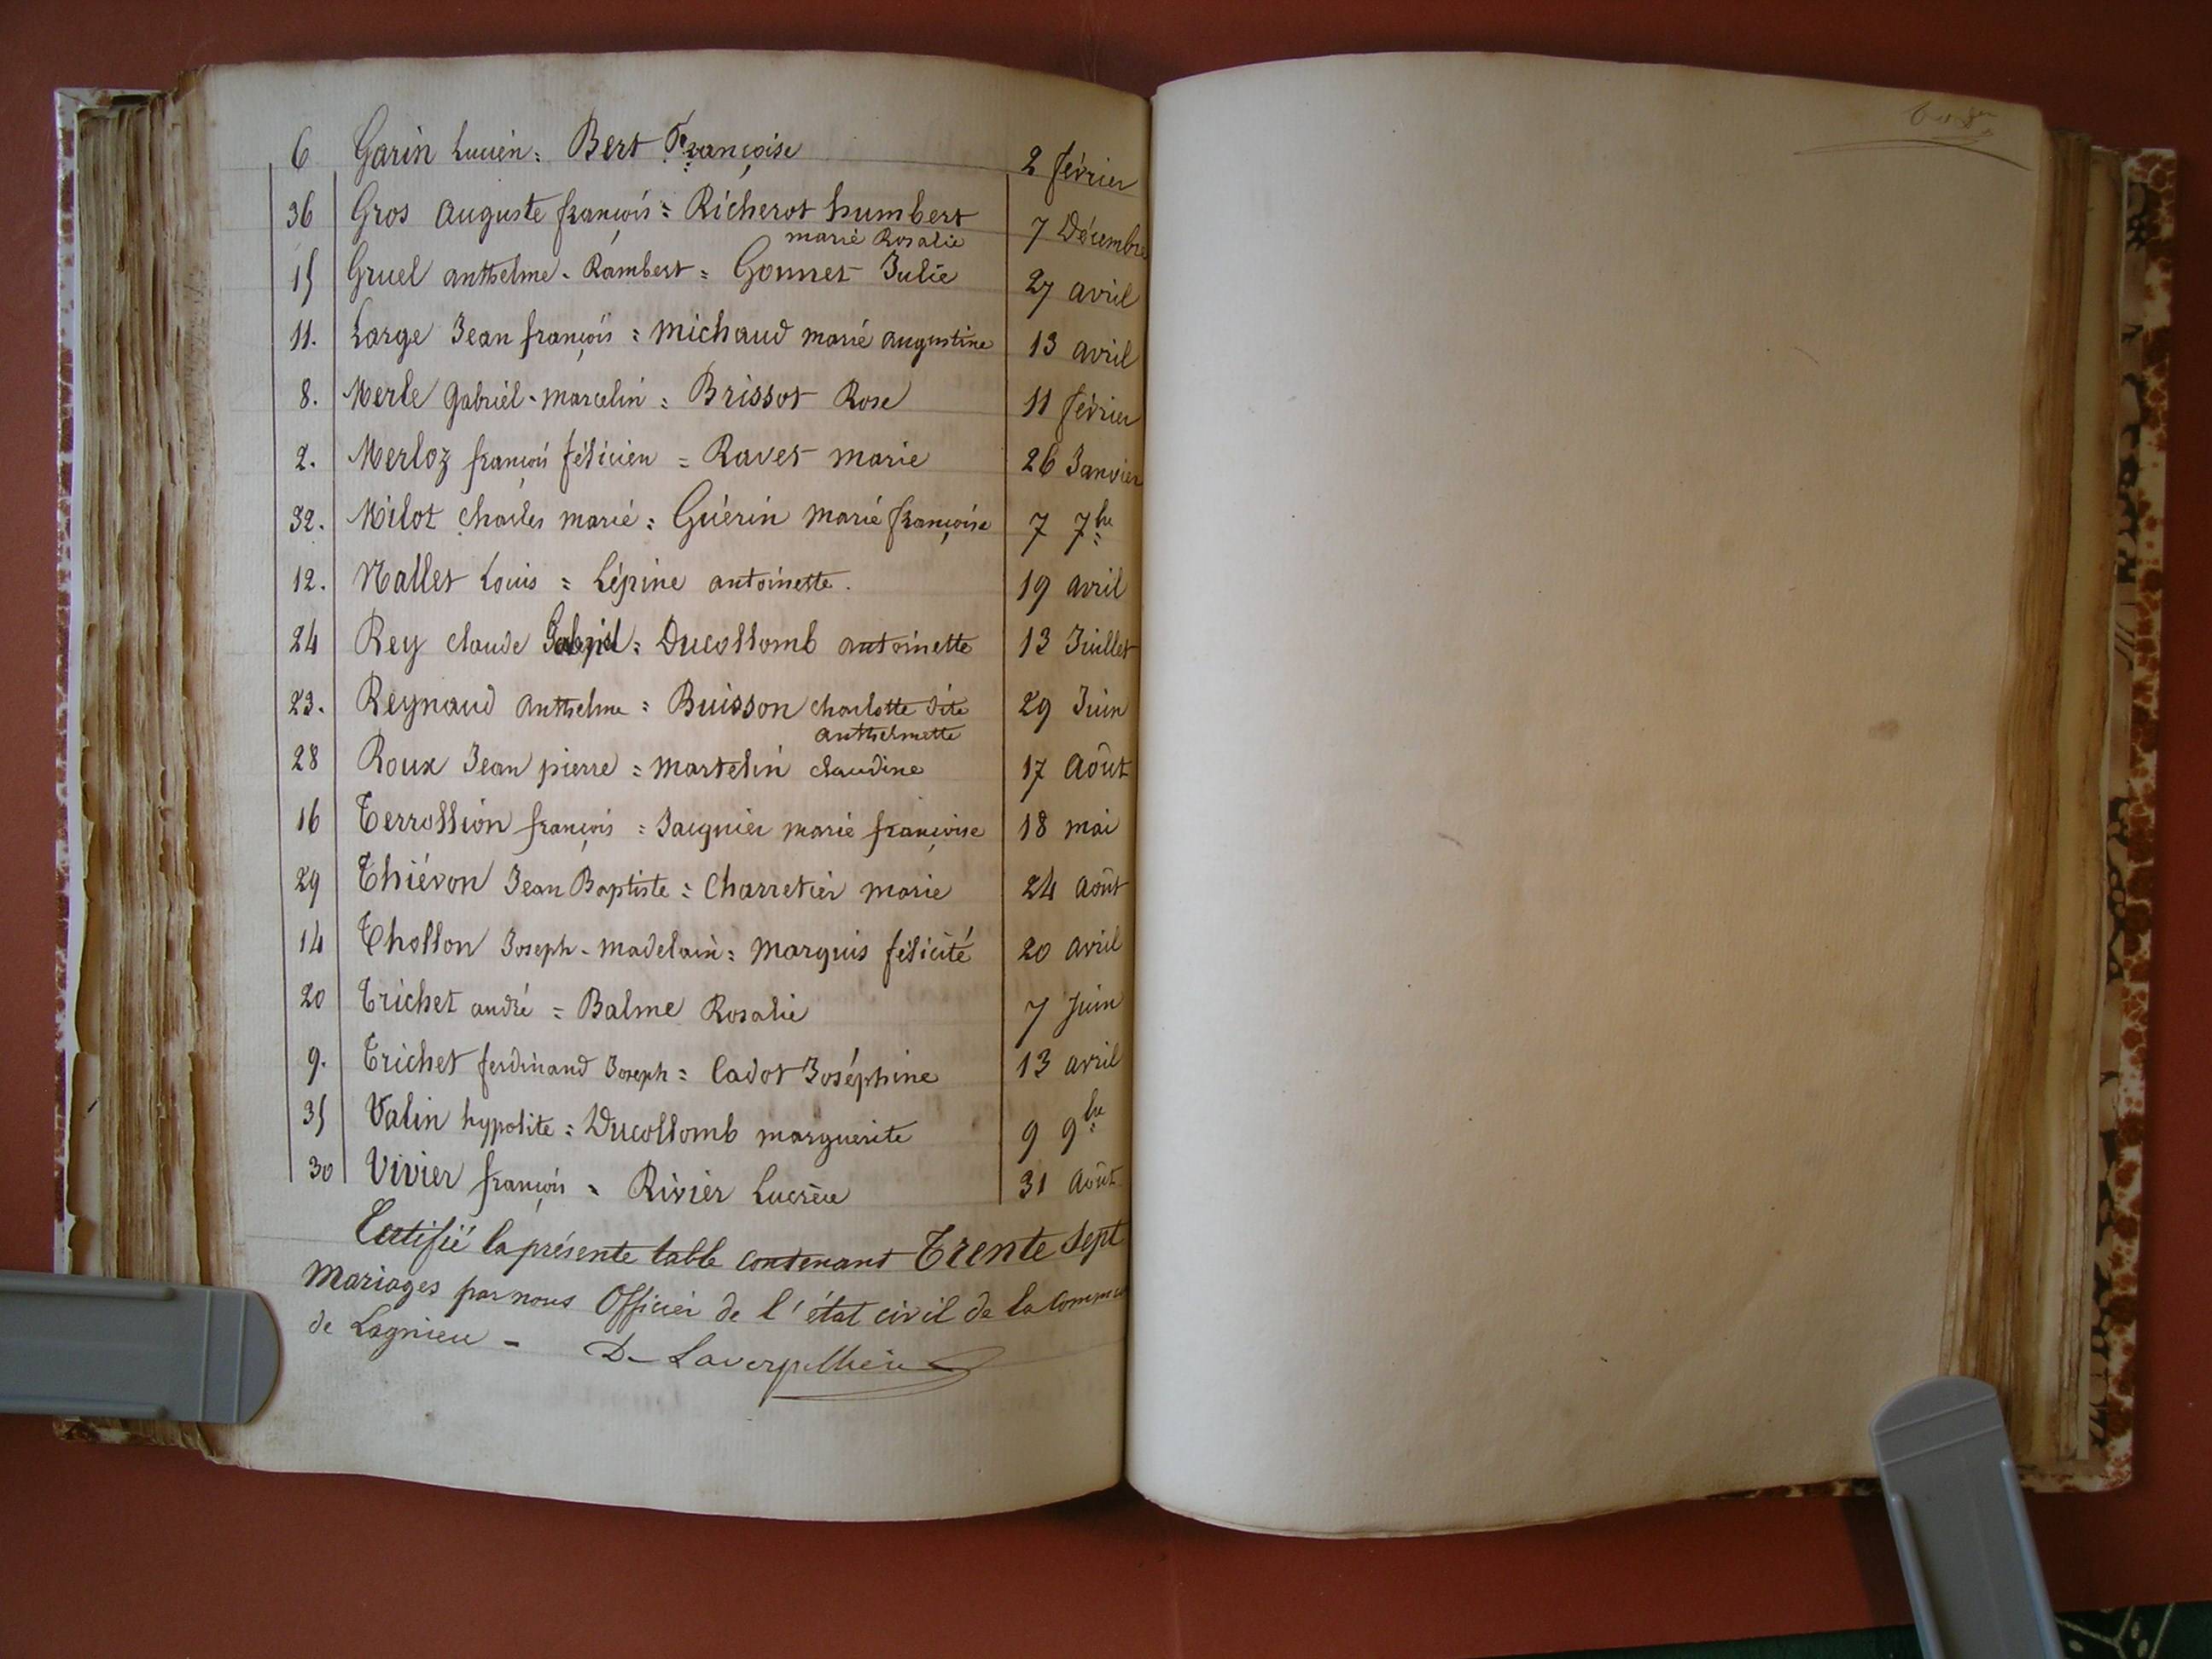 6 Garin Lucien = Bert Françoise 2 février
36 Gros Auguste françois = Richerot humbert 7 Décembre
marie Rosalie
15 Gruel anthelme - Rambert = Gonnet Julie 27 avril
11. Large Jean françois = Michaud marie augustine 13 avril
8. Merle Gabriel - marcelin = Brissot Rose 11 février
2. Merloz françois félicien = Ravet marie 26 Janvier
32. Milot charles marie = Guérin Marie françoise 7 7bre
12. Nallet Louis = Lépine antoinette. 19 avril
24 Rey claude Gabriel = Ducollomb antoinette 13 Juillet
23. Reynaud Anthelme = Buisson charlotte dite 29 Juin
anthelmette
28 Roux Jean pierre = Martelin claudine 17 Août
16 Terrollion françois = Jacquier marie françoise 18 mai
29 Thiévon Jean Baptiste = Charretier marie 24 août
14 Thollon Joseph - madelain = Marquis félicité 20 avril
20 Trichet andré = Balme Rosalie 7 Juin
9. Trichet ferdinand Joseph = Cadot Joséphine 13 avril
35 Valin hypolite = Ducollomb marguerite 9 9bre
30 Vivier françois = Rivier Lucrèce 31 Août
Certifié la présente table contenant Trente sept
Mariages par nous Officier de l'état civil de la Commune
de Lagnieu - D. Laverpillière